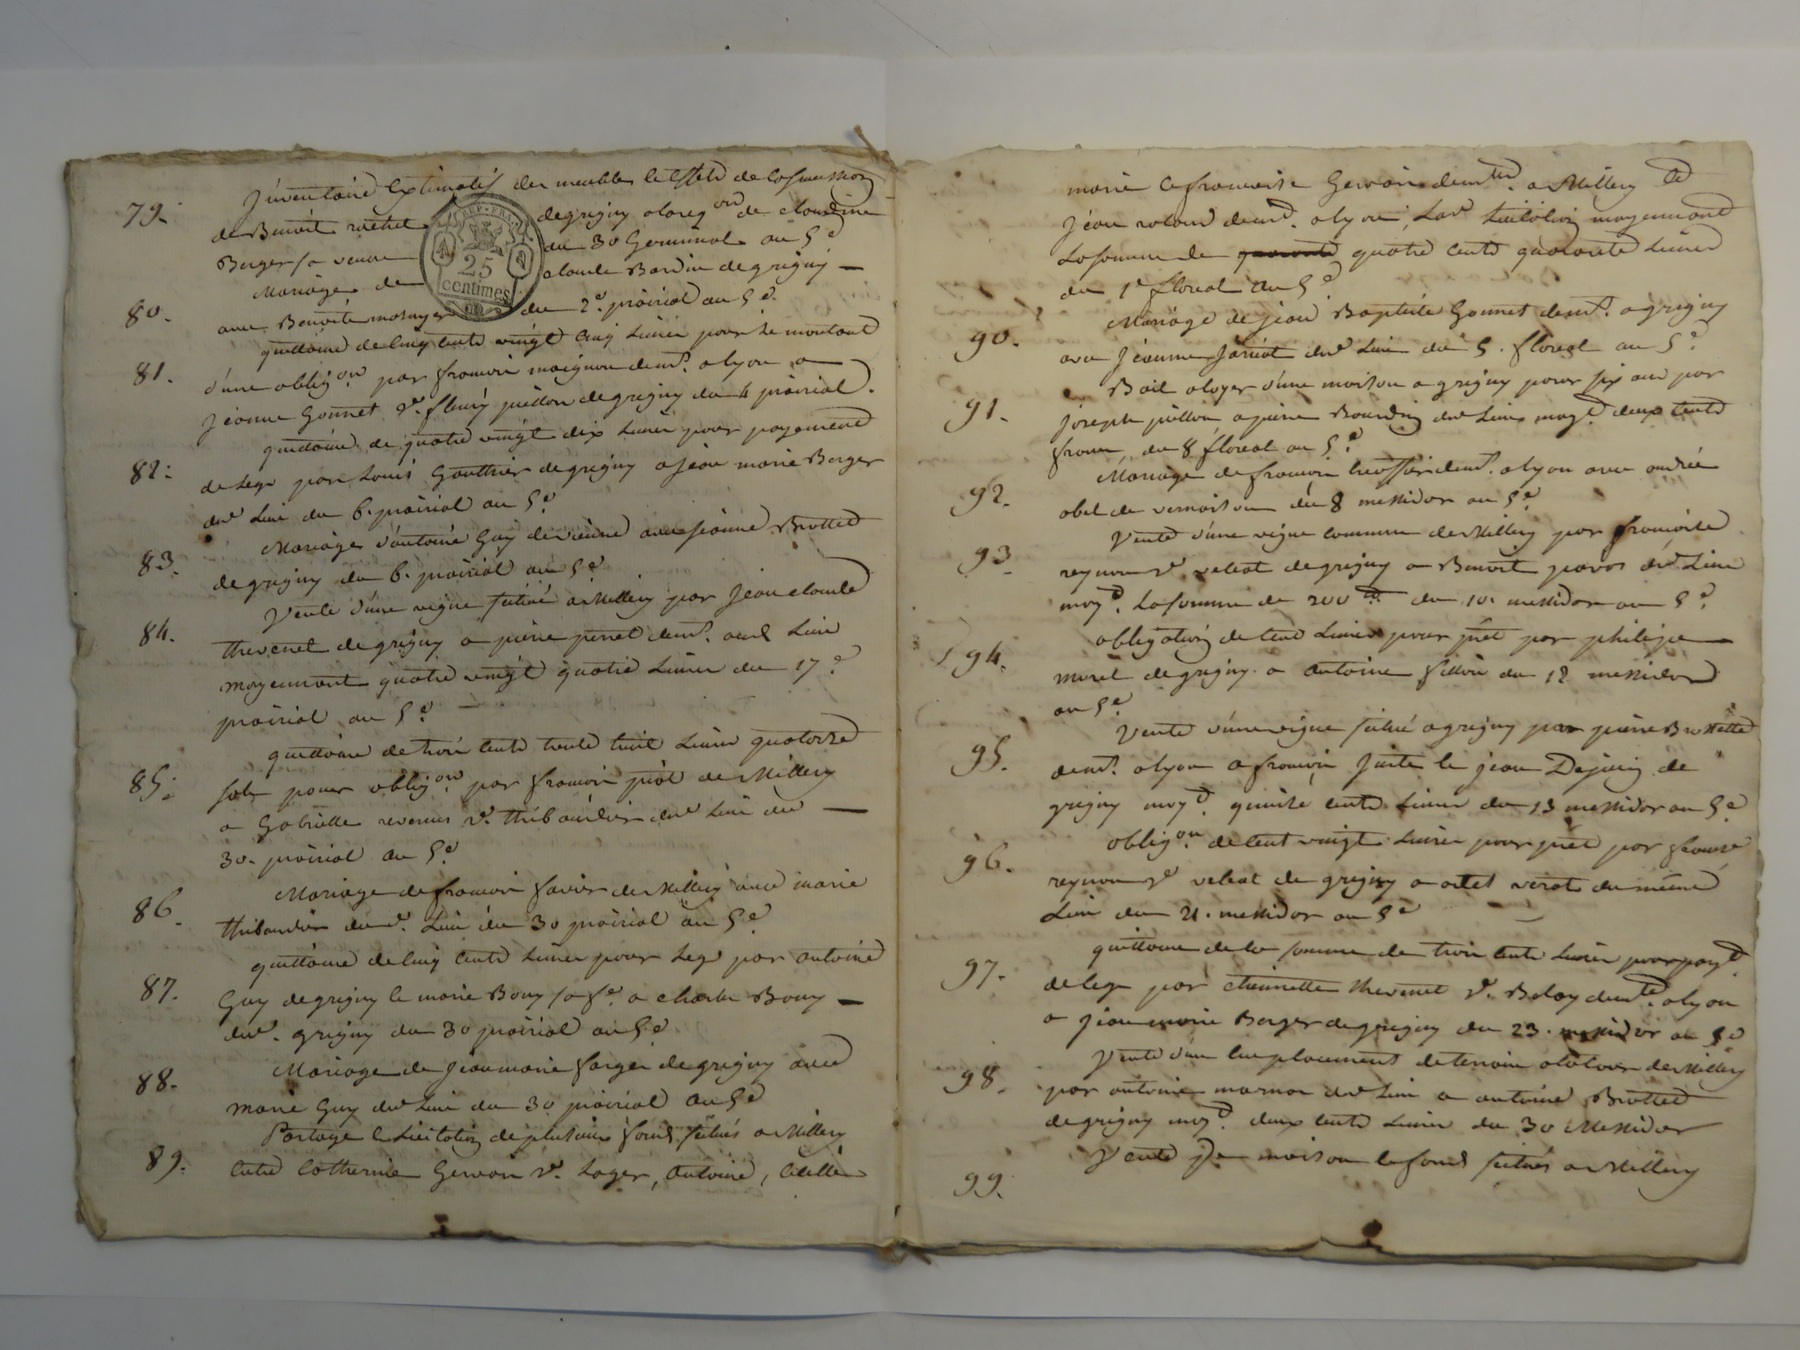 79. Inventaire Estimatif des meubles et effets de la succession
de Benoît rachet degrigny a la req.on de claudine
Berger sa veuve du 30 Germinal an 5.e
80. Mariage de claude Bardin de grigny —
avec Benoite du 2.e prairial an 5.e
81. quittance de cinq cents vingt cinq Livres pour le montant
d'une oblig.on par francois demt. a lyon a —
Jeanne Gonnet v.e fleury pitton de grigny du 4 prairial.
82. quittance de quatre vingt dix Livres pour payement
de Legs par Louis Gauthier de grigny a Jean marie Berger
dud Lieu du 6. prairial an 5.e
83. Mariage d'antoine Guy de vienne avec jeanne Brotted
de grigny du 6. prairial an 5.e
84. Vente d'une vigne située a Millery par Jean claude
thevenet de grigny a pierre perret demt. aud Lieu
moyennant quatre vingt quatre Livres du 17.e
prairial an 5.e
85. quittance de trois cents trente huit Livres quatorze
sols pour oblig.on par francois piot de Millery
a Gabrielle v.e thibaudier dud Lieu du —
30. prairial an 5.e
86. Mariage de francois favier de Millery avec marie
thibaudier dud. Lieu du 30 prairial an 5.e
87. quittance de cinq cents Livres pour Legs par antoine
Guy de grigny et marie Bouy sa fe. a charles Bouy —
dud. grigny du 30 prairial an 5.e
88. Mariage de Jean marie farge de grigny avec
marie Guy dud Lieu du 30 prairial an 5.e
89. Partage et Licitation de plusieurs fonds situés a Millery
entre Catherine Gervais v.e Loger, antoine,
REP. FRA.
25
centimes
marie et francoise Gervais demt. a Millery et
Jean demt. a lyon, Lad. Licitation moyennant
La somme de quarante quatre cents quarante Livres
du 1.e floreal an 5.e
90. Mariage de jean Baptiste Gonnet demt. a grigny
avec Jeanne Jarriat dud Lieu du 5. floreal an 5.e
91. Bail a loyer d'une maison a grigny pour six ans par
joseph pitton a pierre Bourdin dud Lieu moy.t deux cents
francs, du 8 floreal an 5.e
92. Mariage de francois demt. a lyon avec andrée
obel de vernaison du 8 messidor an 5.e
93. Vente d'une vigne commune de Millery par francoise
reynon v.e veleat de grigny a Benoit pavos dud. Lieu
moy.t La somme de 200 du 10. messidor an 5.e
94. obligation de cent Livres pour prêt par philipe —
morel de grigny a antoine fillion du 12 messidor
an 5.e
95. Vente d'une vigne située a grigny par pierre Brottette
demt. a lyon a francois Juste et jean Dejoin de
grigny moy.t quinze cents Livres du 13 messidor an 5.e
96. oblig.on de cent vingt Livres pour prêt par
reynon v.e veleat de grigny a verot du même
Lieu du 21. messidor an 5.e
97. quittance de la somme de trois cents Livres pour pay.t
de legs par etiennette thevenet v.e demt. a lyon
a Jean marie Berger de grigny du 23. messidor an 5.e
98. Vente d'un emplacement de terrain a la tour de Millery
par antoine dud Lieu a antoine Brotted
de grigny moy.t deux cents Livres du 30 Messidor
99. Vente de maison et fonds situés a Millery